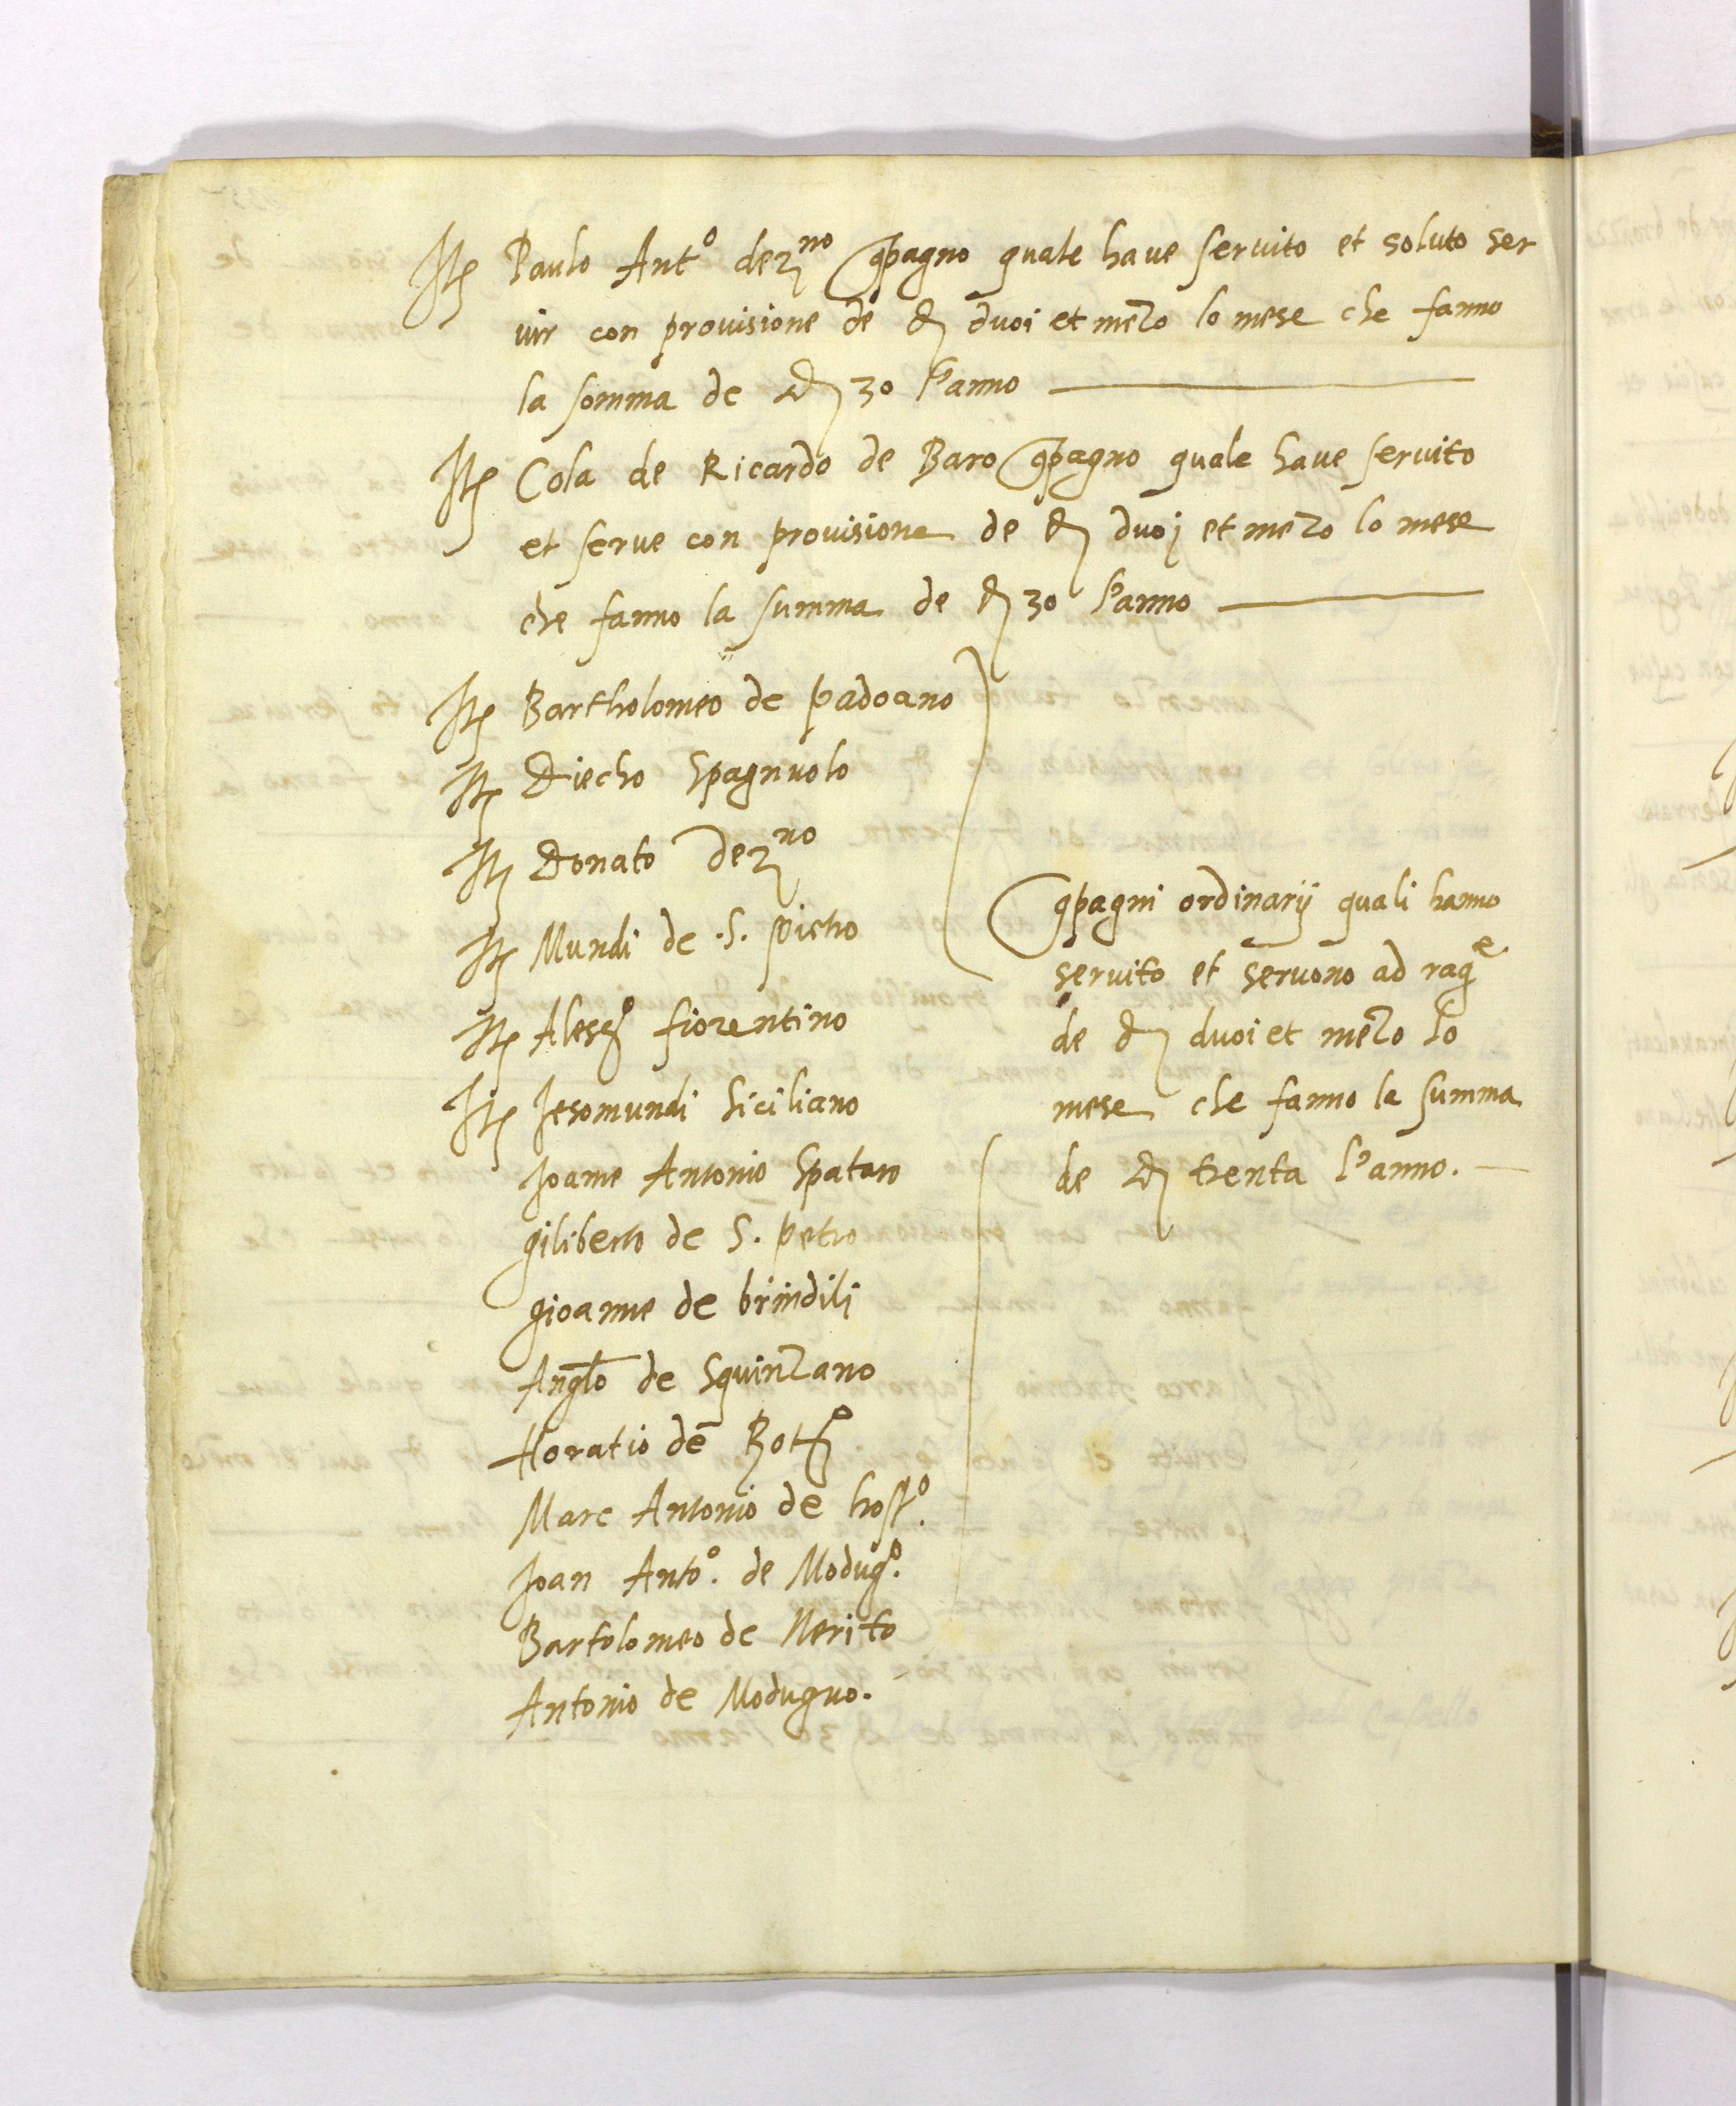 Itē Paulo Antº derno Cōpagno quale have servito et soluto ser
vir con provisione de d. duoi et mezo lo mese che fanno
la somma de d. 30 l'anno
Itē Cola de Ricardo de Baro Cōpagno quale have servito
et serve con provisione de d. duoj et mezo lo mese
che fanno la summa de d. 30 l'anno
Itē Bartholomeo de padoano
Itē Diecho Spagnuolo
Itē Donato
Itē Mundi de .S. pietro
Itē Alesº fiorentino
Itē Jesomundi Siciliano
Joanne Antonio Spataro
giliberto de S. petro
gioanne de brindili
Anglo de Squinzano
Horatio de
Marc Antonio de
Joan Antoº. de Modugº.
Bartolomeo de Nerito
Antonio de Modugno.
Cōpagni ordinarij quali hanno
servito et servono ad rage
de d. duoi et mezo lo
mese che fanno la summa
de d. trenta l'anno.